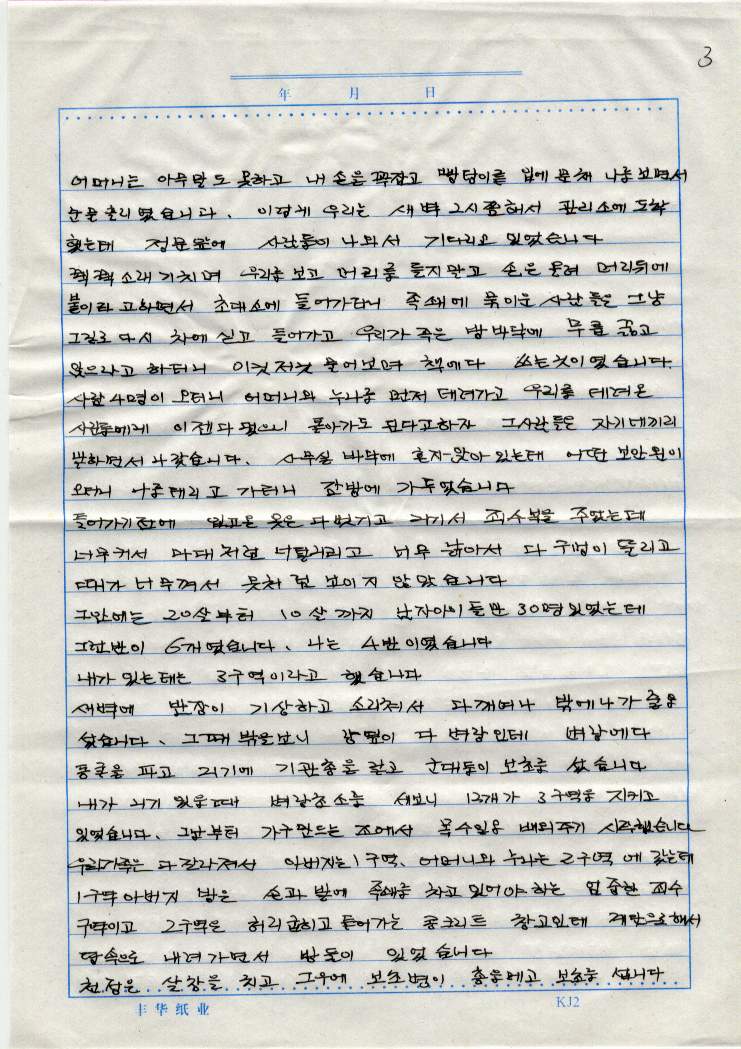 3
年 月 日
어머니는 아무말도 못하고 내 손을 꼭잡고 빵덩이를 입에 문채 나를 보면서
눈물 흘리였습니다. 이렇게 우리는 새벽 2시쯤해서 관리소에 도착
했는데 정문앞에 사람들이 나와서 기다리고 있었습니다
꽥꽥 소래기치며 우리를 보고 머리를 들지말고 손을 올려 머리뒤에
붙이라고하면서 초대소에 들어가더니 족쇄에 묶이운 사람들은 그냥
그길로 다시 차에 싣고 들어가고 우리가족은 방바닥에 무릎 꿇고
앉으라고 하더니 이것저것 물어보며 책에다 쓰는것이였습니다.
사람 4명이 오더니 어머니와 누나를 먼저 데려가고 우리를 데려온
사람들에게 이젠 다 됐으니 돌아가도 된다고하자 그사람들은 자기네끼리
말하면서 나갔습니다. 사무실 바닥에 혼자 앉아 있는데 어떤 보안원이
오더니 나를 데리고 가더니 잔방에 가두었습니다
들어가기전에 입고온 옷은 다벗기고 거기서 죄수복을 주었는데
너무커서 마대처럼 너덜거리고 너무 낡아서 다 구멍이 뚫리고
때가 너무껴서 옷처럼 보이지 않았습니다
그안에는 20살부터 10살까지 남자아이들만 30명있었는데
그런반이 6개였습니다. 나는 4반이였습니다
내가 있는데는 3구역이라고 했습니다
새벽에 반장이 기상하고 소리쳐서 다깨여나 밖에나가 줄을
섰습니다. 그때 밖을보니 앞이 다 벼랑인데 벼랑에다
콩쿨을 파고 거기에 기관총을 걸고 군대들이 보초를 섰습니다
내가 거기 있을때 벼랑초소를 세보니 13개가 3구역을 지키고
있었습니다. 그날부터 가구만드는 조에서 목수일을 배워주기 시작했습니다
우리가족은 다갈라져서 아버지는 1구역, 어머니와 누나는 2구역에 갔는데
1구역아버지 방은 손과 발에 족쇄를 차고 있어야 하는 엄중한 죄수
구역이고 2구역은 허리굽히고 들어가는 콩크리트 창고인데 계단으로해서
땅속으로 내려가면서 방들이 있었습니다
천정은 살창을 치고 그우에 보초병이 총을메고 보초를 섭니다
丰华纸业 KJ2